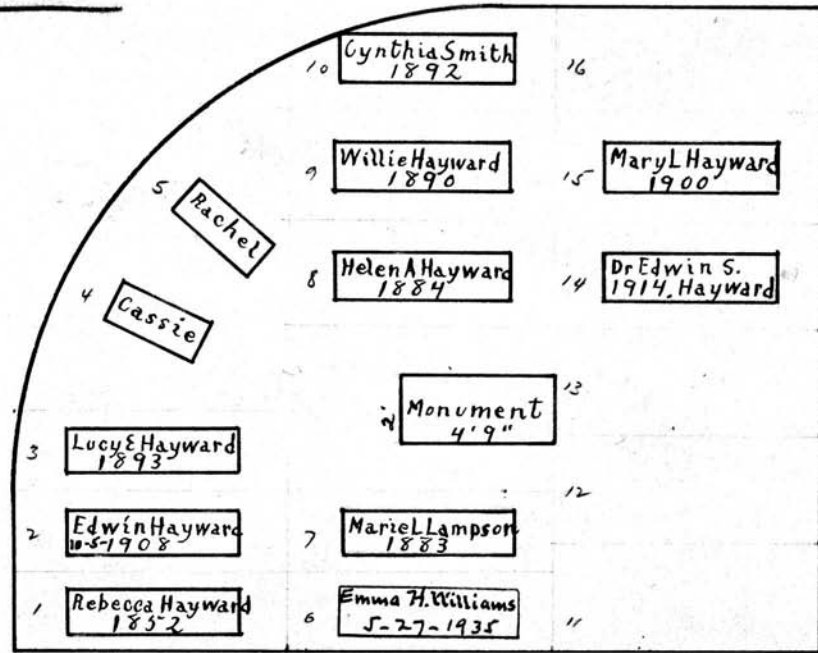 10
Cynthia Smith
1892
16
9
Willie Hayward
1890
15
Mary L Hayward
1900
5
Rachel
8
Helen A Hayward
1884
14
Dr Edwin S.
1914. Hayward
4
Cassie
13
2'
Monument
4'9"
3
Lucy E Hayward
1893
12
2
Edwin Hayward
10-5-1908
7
Marie L Lampson
1883
1
Rebecca Hayward
1852
6
Emma H. Williams
5-27-1935
11